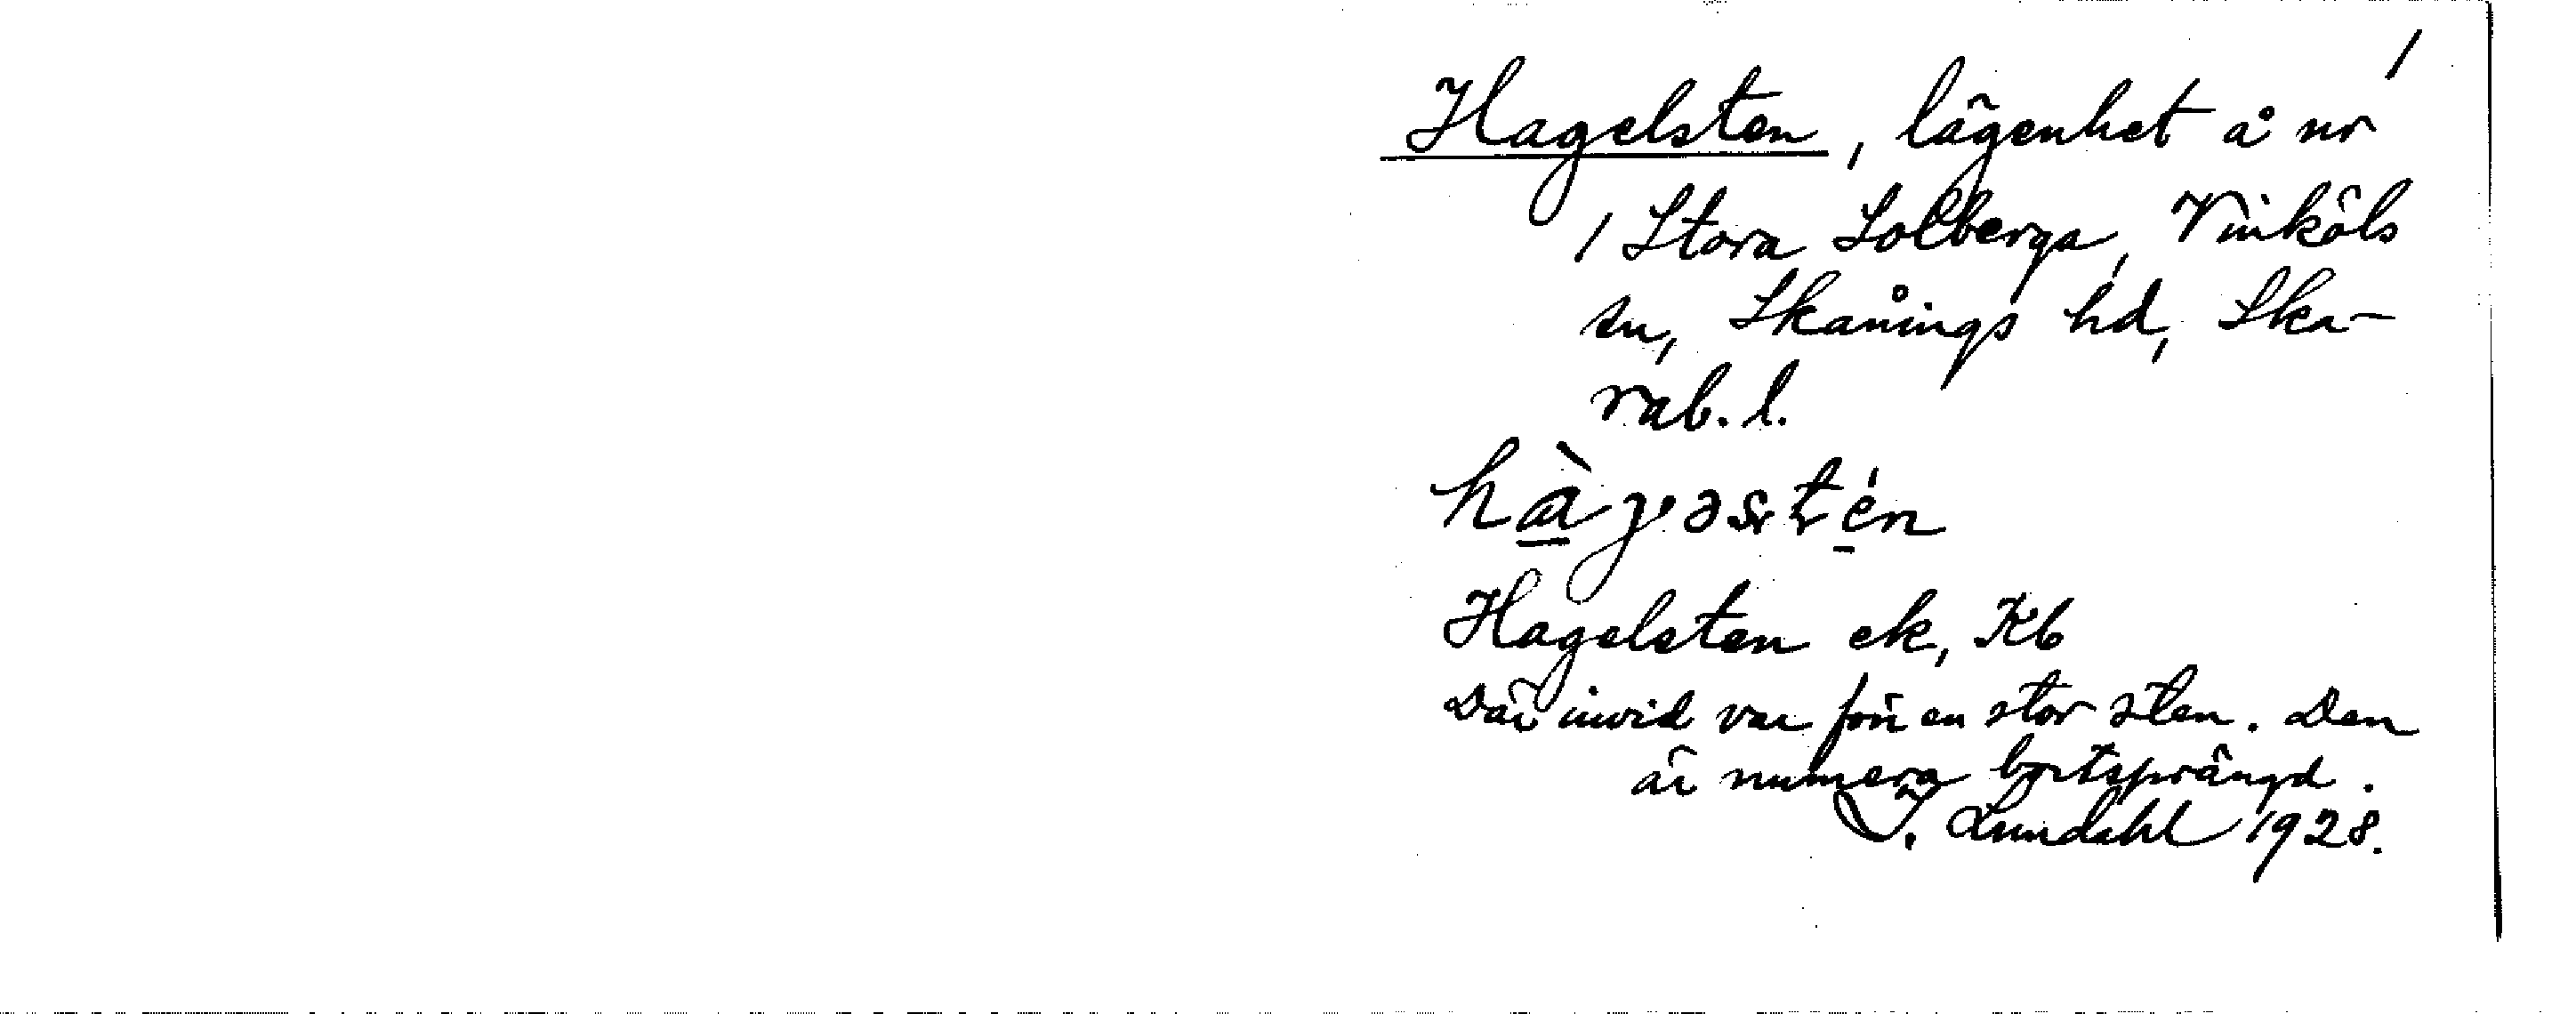 1
Hagelsten, lägenhet å nr
1 Stora Solberga, Vinköls
sn, Skånings hd, Ska-
rab. l.
hàgəstén
Hagelsten ek, Kb
Där invid var förr en stor sten. Den
är numera bortsprängd.
I. Lundahl 1928.